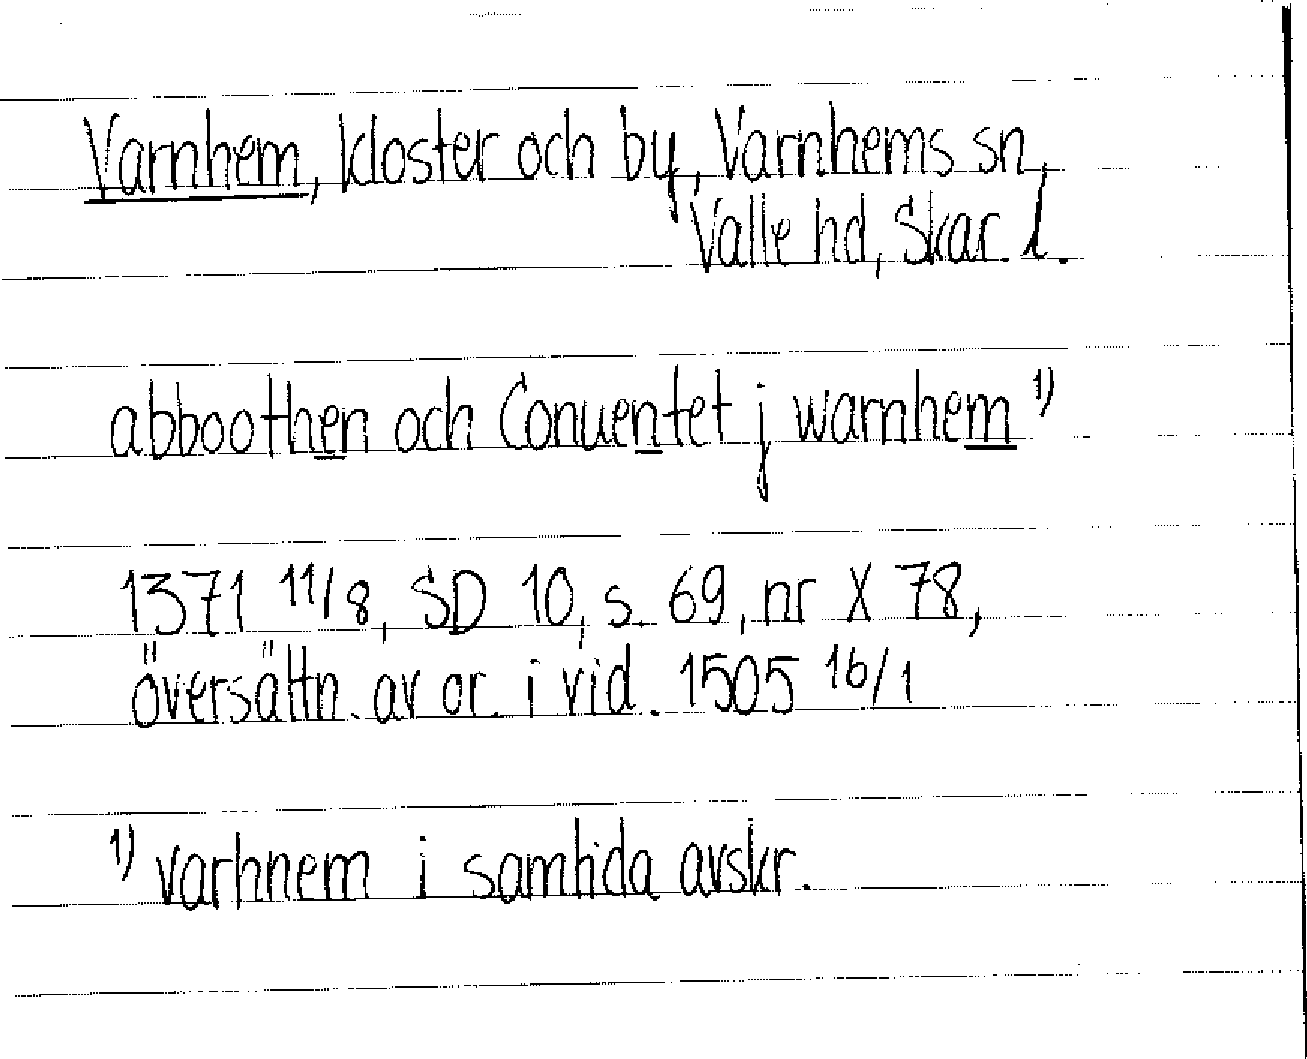 Varnhem, kloster och by, Varnhems sn,
Valle hd, Skar. l.
abboothen och Conuentet j warnhem 1)
1371 11/8, SD 10, s. 69, nr X 78,
översättn. av or. i vid. 1505 16/1
1) varhnem i samtida avskr.